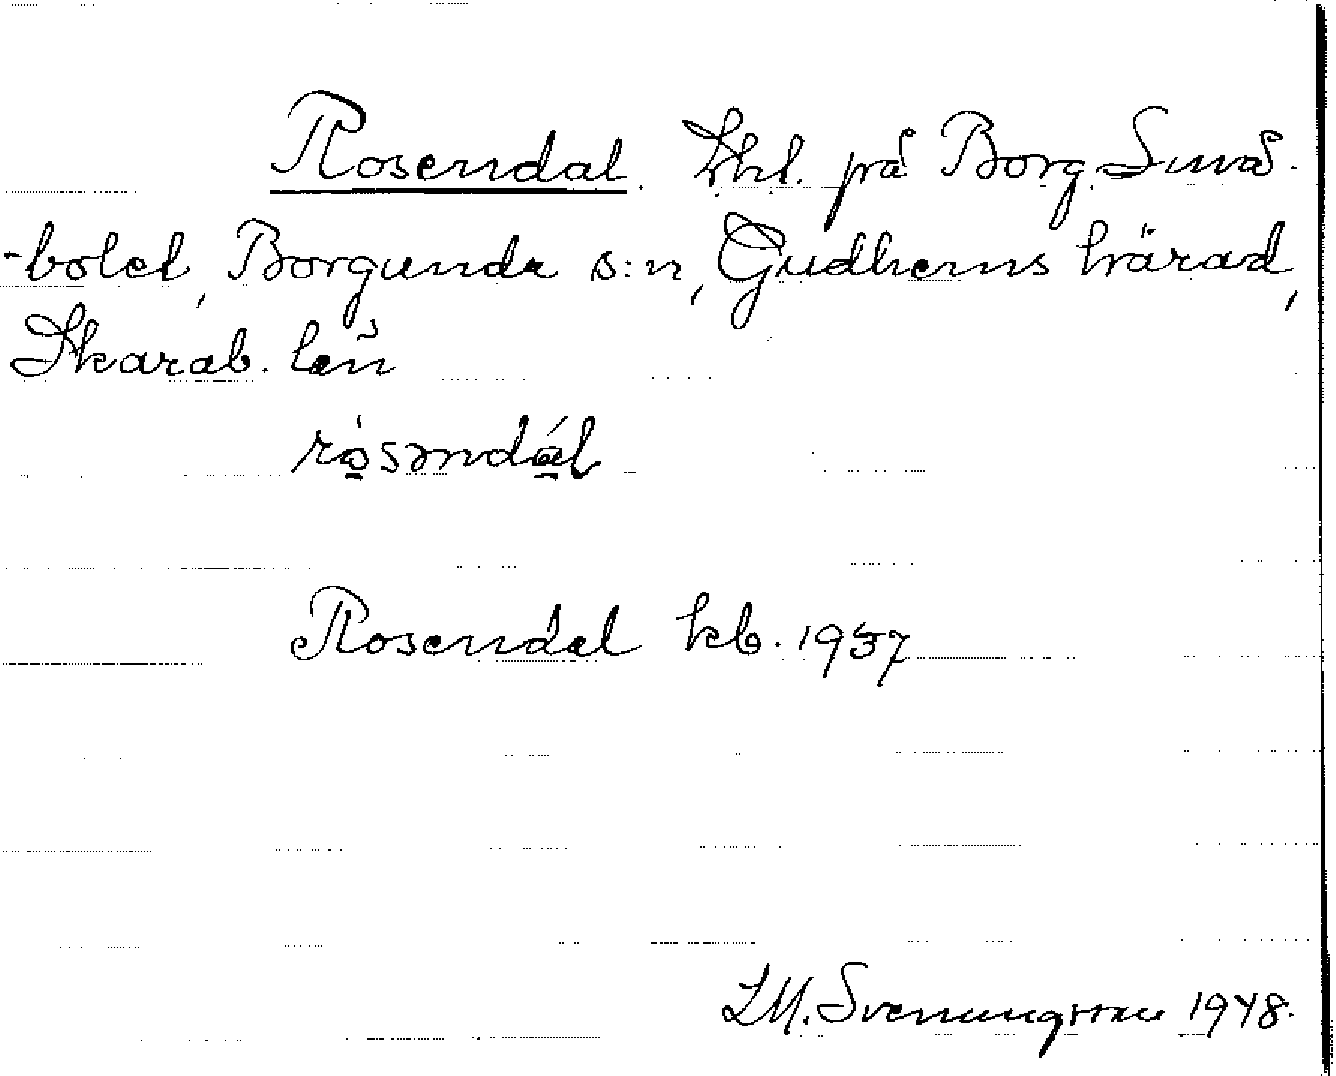 Rosendal. Lht. på Borg. Små-
-bolet, Borgunda s:n, Gudhems härad,
Skarab. län
rósəndál
Rosendal kb. 1937
L.M. Svenungsson 1948.